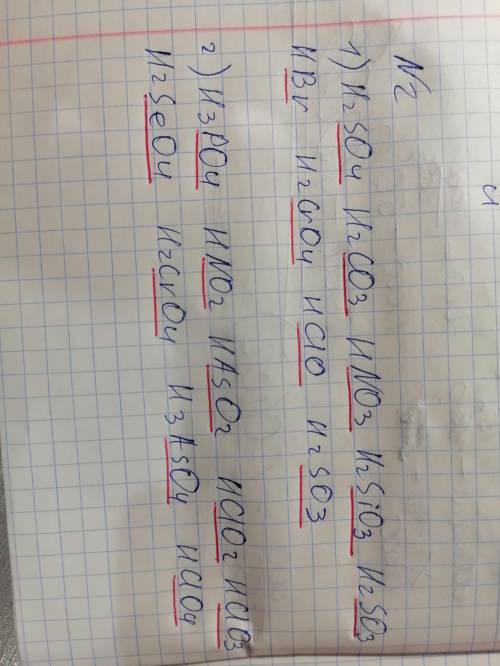 N2
1) H2SO4 H2CO3 HNO3 H2SiO3 H2SO3
HBr H2CrO4 HClO H2SO3
2) H3PO4 HNO2 HAsO2 HClO2 HClO3
H2SeO4 H2CrO4 H3AsO4 HClO4